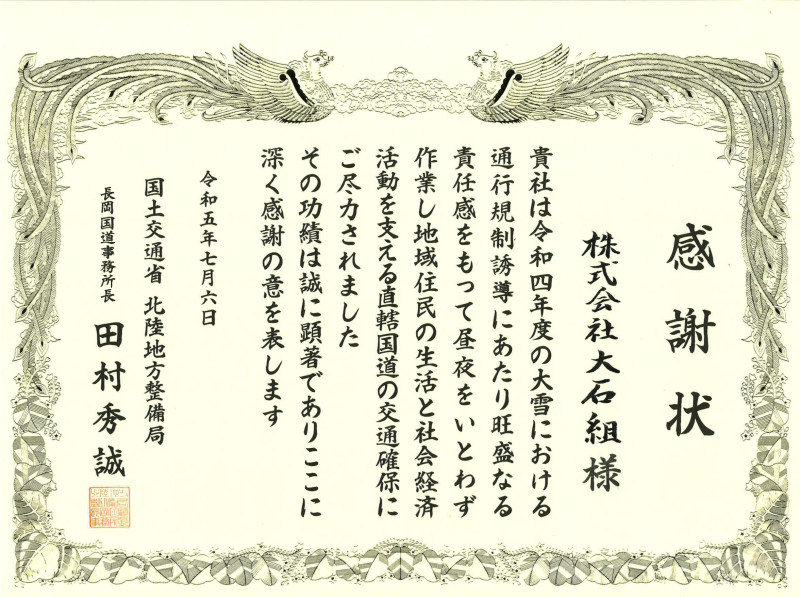 感謝状
株式会社大石組様
貴社は令和四年度の大雪における
通行規制誘導にあたり旺盛なる
責任感をもって昼夜をいとわず
作業し地域住民の生活と社会経済
活動を支える直轄国道の交通確保に
ご尽力されました
その功績は誠に顕著でありここに
深く感謝の意を表します
令和五年七月六日
国土交通省 北陸地方整備局
長岡国道事務所長 田村秀誠